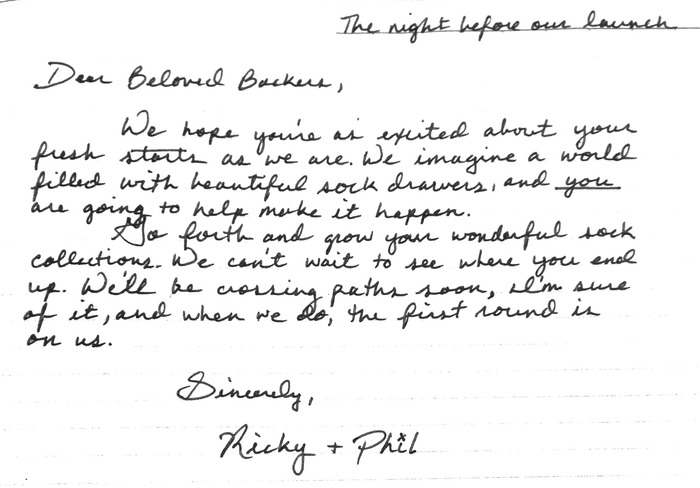 The night before our launch
Dear Beloved Backers,
We hope you're as excited about your
fresh starts as we are. We imagine a world
filled with beautiful sock drawers, and you
are going to help make it happen.
Go forth and grow your wonderful sock
collections. We can't wait to see where you end
up. We'll be crossing paths soon, I'm sure
of it, and when we do, the first round is
on us.
Sincerely,
Ricky + Phil